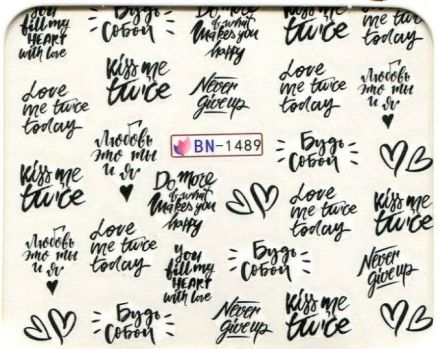 you
fill my
HEART
with love
Будь
собой
Kiss me
twice
Do more
of what
makes you
happy
Kiss me
twice
Love
me twice
today
Love
me twice
today
Kiss me
twice
Never
give up
Love
me twice
today
Любовь
это ты
и я
Любовь
это ты
и я
BN-1489
Будь
собой
Kiss me
twice
Do more
of what
makes you
happy
Love
me twice
today
Kiss me
twice
Любовь
это ты
и я
Love
me twice
today
you
fill my
HEART
with love
Будь
собой
Never
give up
Будь
собой
Never
give up
Kiss me
twice